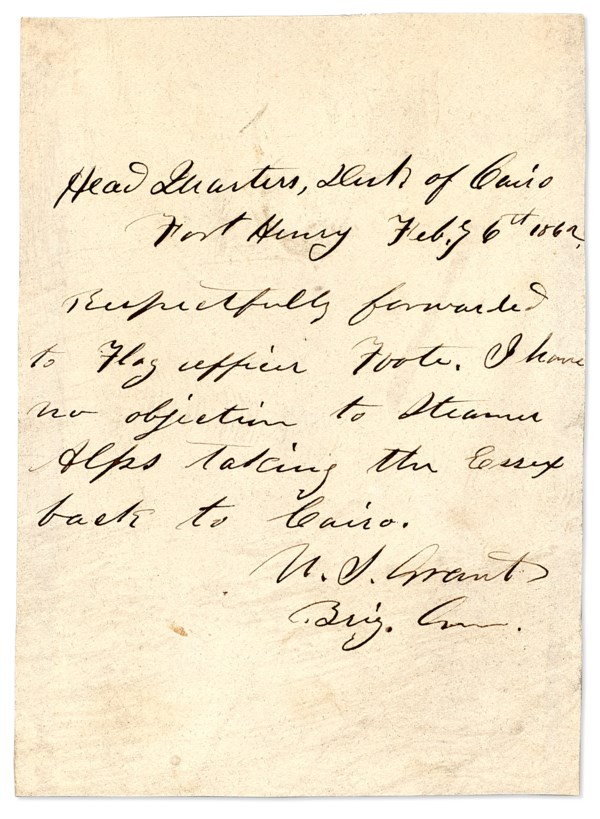 Head Quarters, Dist. of Cairo
Fort Henry Feb.y 6th 1862,
Respectfully forwarded
to Flag officer Foote. I have
no objection to Steamer
Alps taking the Essex
back to Cairo.
U. S. Grant
Brig. Gen.